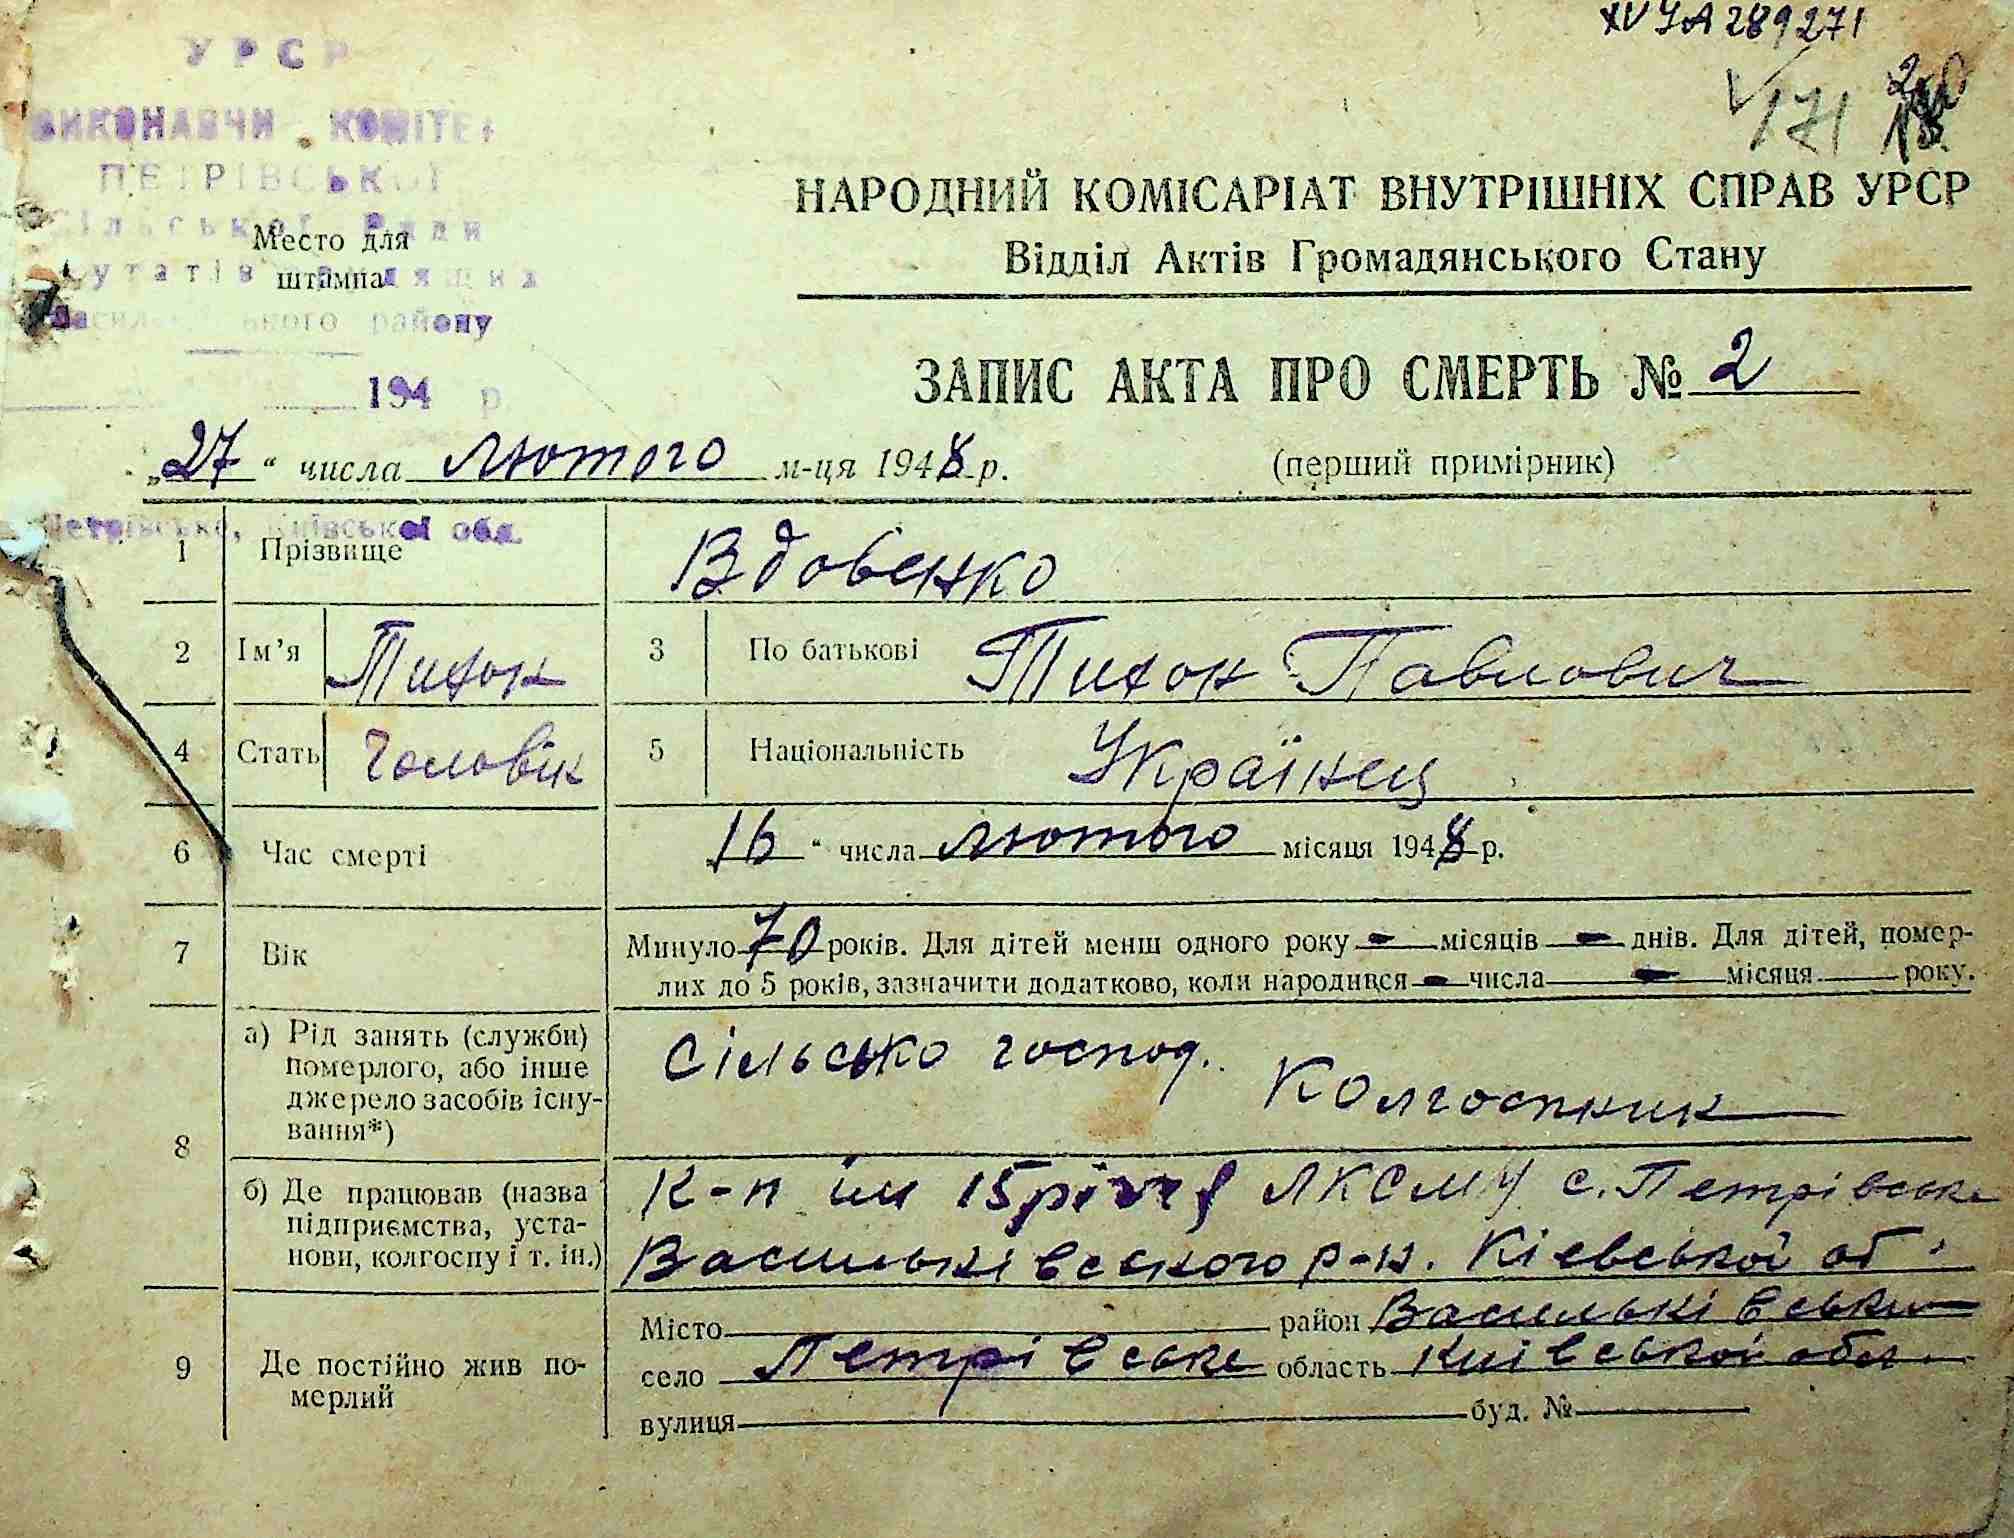 XV УА 289271
171
УРСР
ВИКОНАВЧИ КОМІТЕТ
ПЕТРІВСЬКОЇ
Сільської Ради
Место для
штампа
району
194 р
НАРОДНИЙ КОМІСАРІАТ ВНУТРІШНІХ СПРАВ УРСР
Відділ Актів Громадянського Стану
ЗАПИС АКТА ПРО СМЕРТЬ № 2
„27“ числа лютого м-ця 1948 р.
(перший примірник)
Петрівське, Київської обл.
1 Прізвище Вдовенко
2 Ім’я Тихон 3 По батькові Тихон Павлович
4 Стать Чоловік 5 Національність Українец
6 Час смерті 16 “ числа лютого місяця 1948 р.
7 Вік Минуло 70 років. Для дітей менш одного року - місяців - днів. Для дітей, помер-
лих до 5 років, зазначити додатково, коли народився - числа - місяця року.
8 а) Рід занять (служби)
померлого, або інше
джерело засобів існу-
вання*)
Сільсько господ. Колгоспник
б) Де працював (назва
підприємства, уста-
нови, колгоспу і т. ін.)
К-п ім 15річчя ЛКСМУ с. Петрівське
Васильківського р-н. Кієвської об.
9 Де постійно жив по-
мерлий
Місто район Васильківськи
село Петрівське область Київської обл.
вулиця буд. №